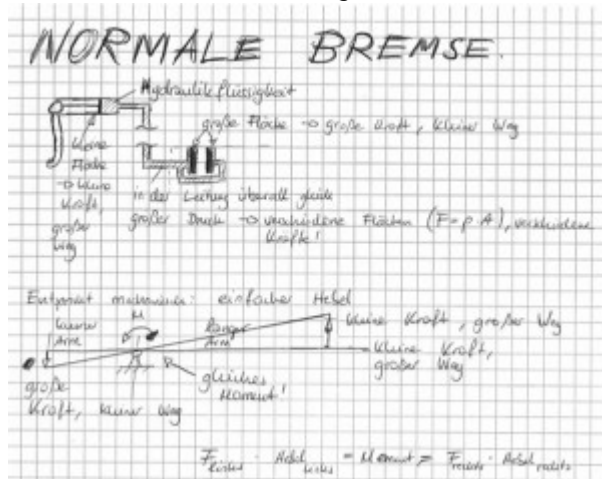 NORMALE BREMSE.
Hydraulikflüssigkeit
große Fläche → große Kraft, kleiner Weg
kleine
Fläche
→ kleine
Kraft,
großer
Weg
in der Leitung überall gleich
großer Druck → verschiedene Flächen (F=p A), verschiedene
Kräfte!
Entspricht mechanisch: einfacher Hebel
kurzer
Arm
M
langer
Arm
kleine Kraft, großer Weg
kleine Kraft,
großer Weg
gleiches
Moment!
große
Kraft, kurzer Weg
F links · Hebel links = Moment = F rechts · Hebel rechts